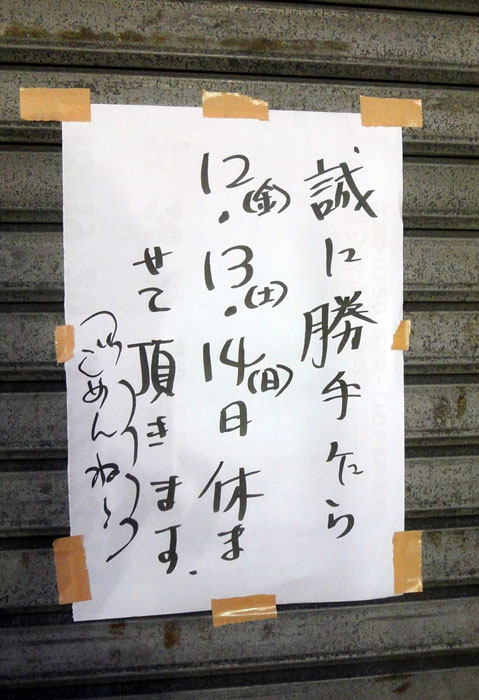 誠に勝手乍ら
12(金).13(土).14(日)日休ま
せて頂きます.
ごめんね〜